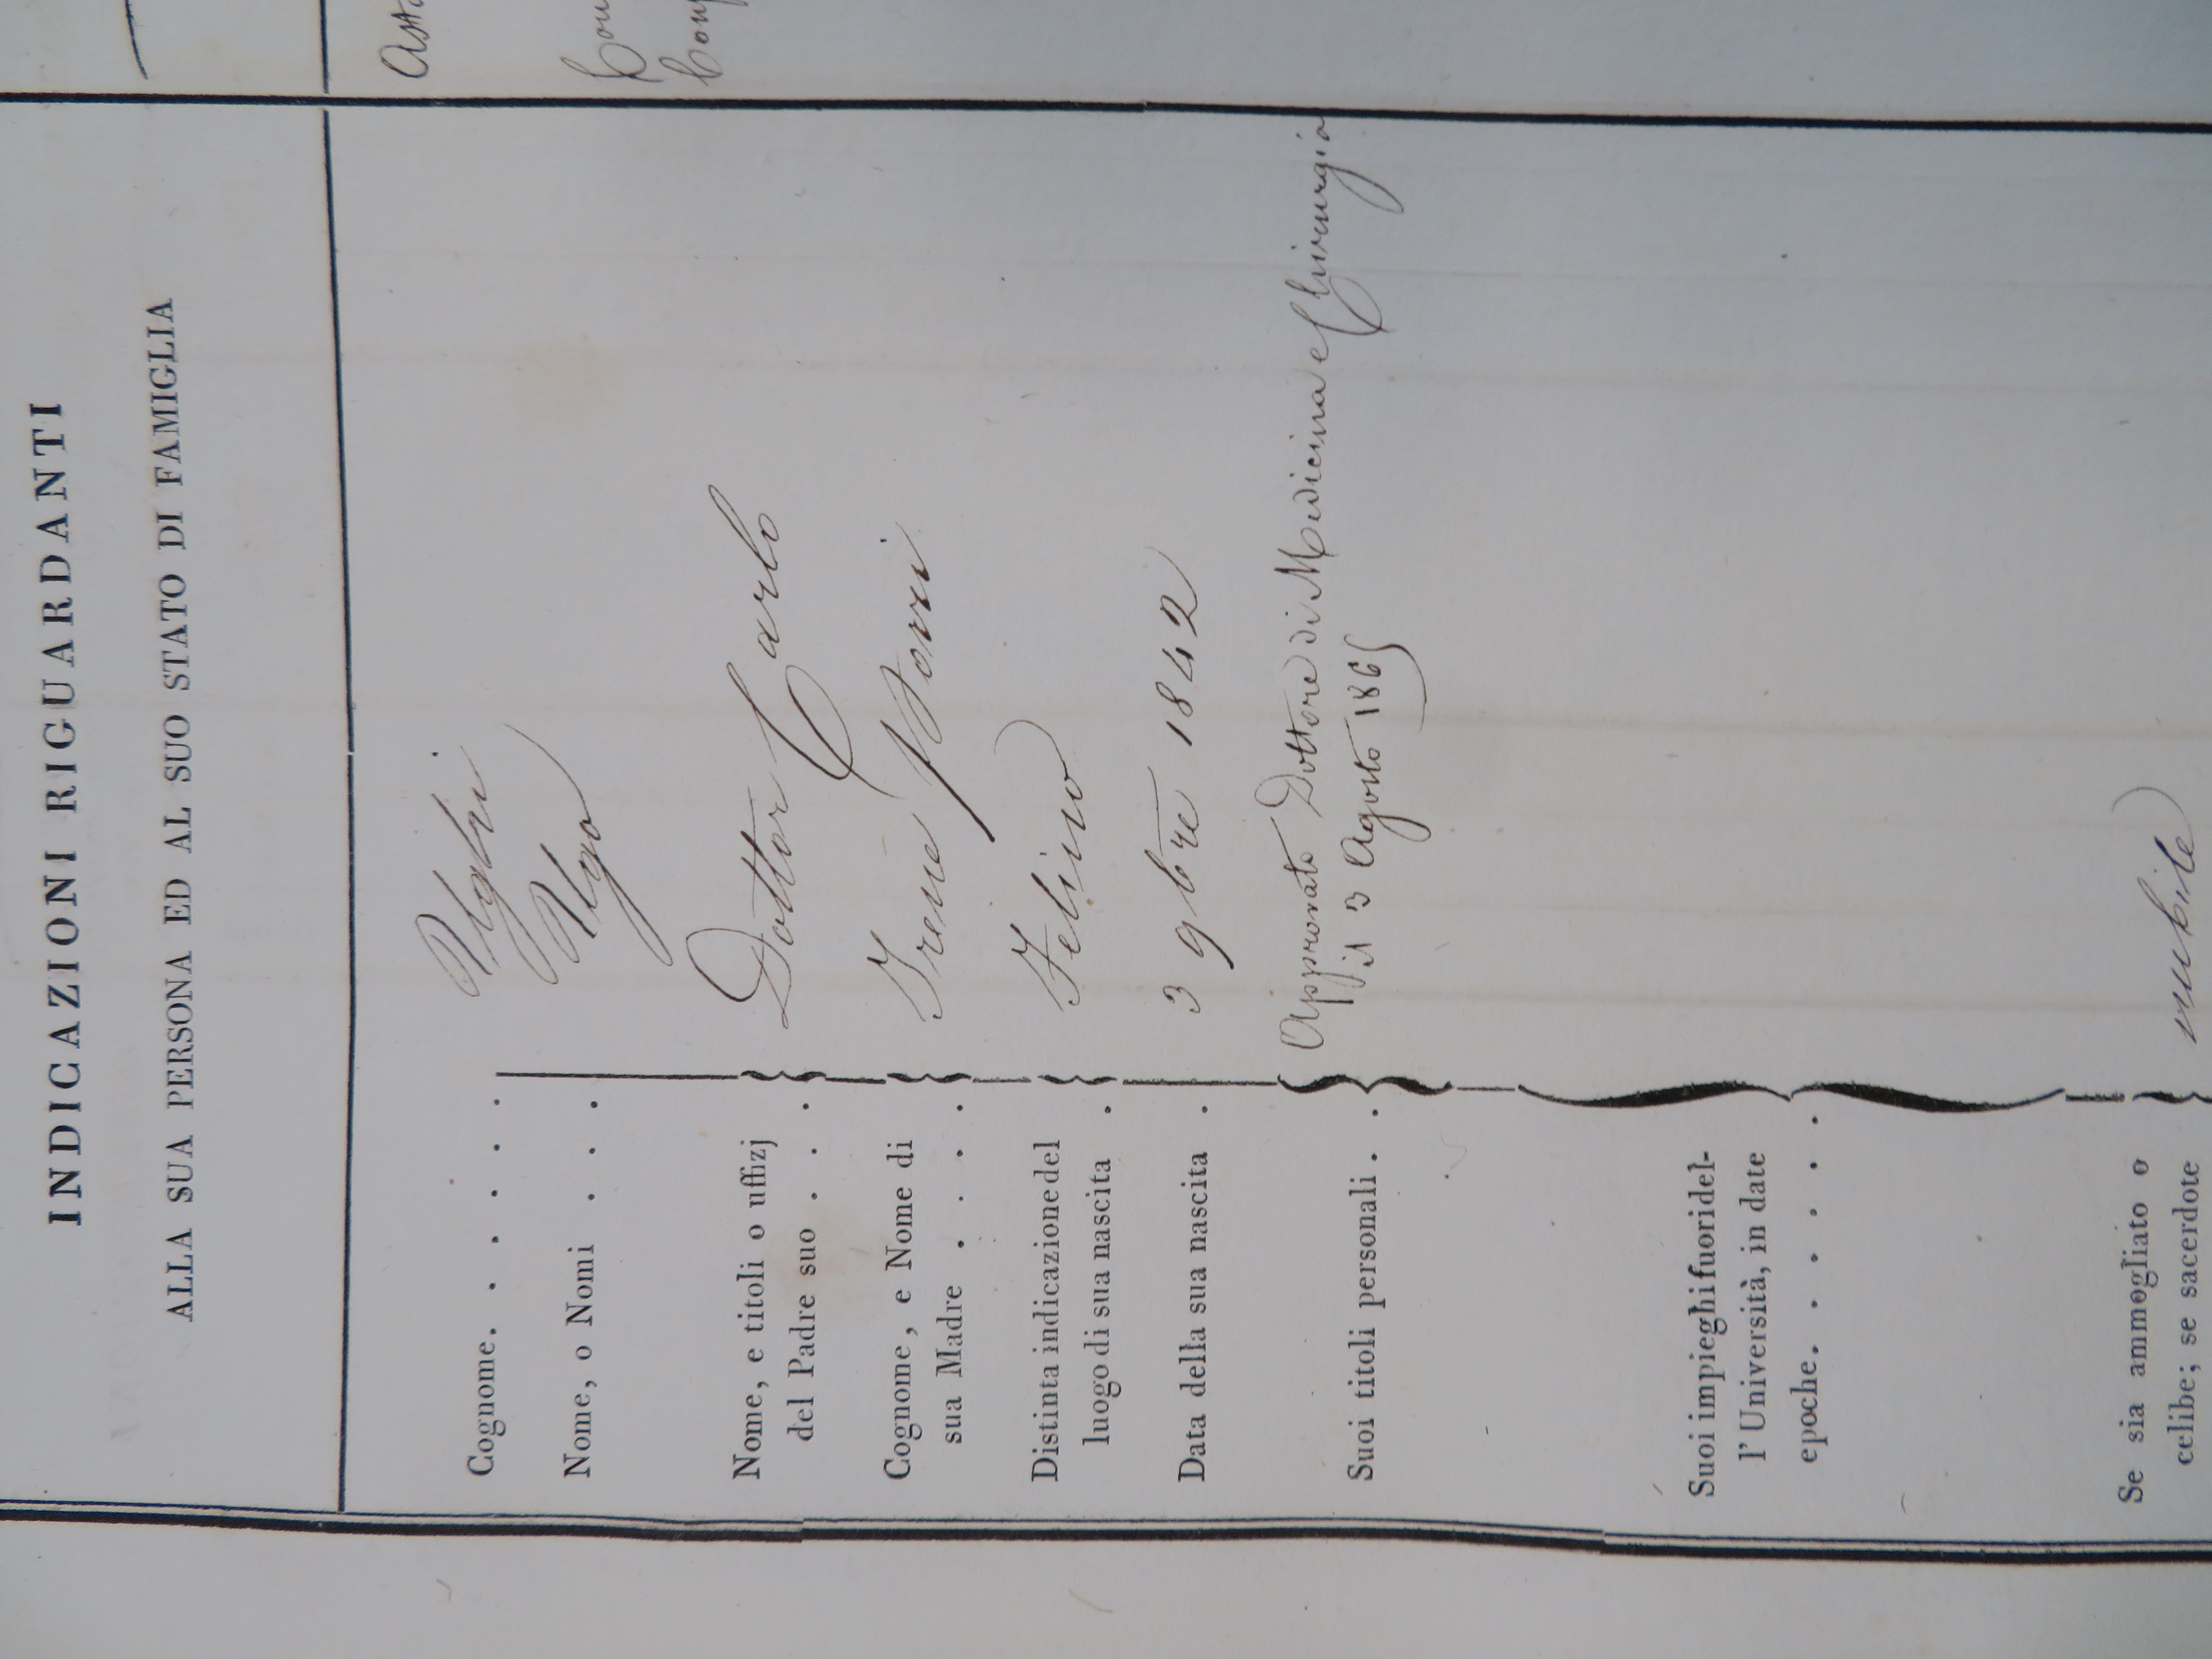 INDICAZIONI RIGUARDANTI
ALLA SUA PERSONA ED AL SUO STATO DI FAMIGLIA
Cognome. . . . . . Ughi
Nome, o Nomi . . . . Ugo
Nome, e titoli o uffizj
del Padre suo . . . Dottor Carlo
Cognome, e Nome di
sua Madre . . . . Irene
Distinta indicazione del
luogo di sua nascita . Felino
Data della sua nascita . 3 9bre 1842
Suoi titoli personali . . Approvato Dottore di Medicina e Chirurgia
il 3 Agosto 1865
Suoi impieghi fuori del-
l'Università, in date
epoche. . . . . . .
Se sia ammogliato o
celibe; se sacerdote nubile